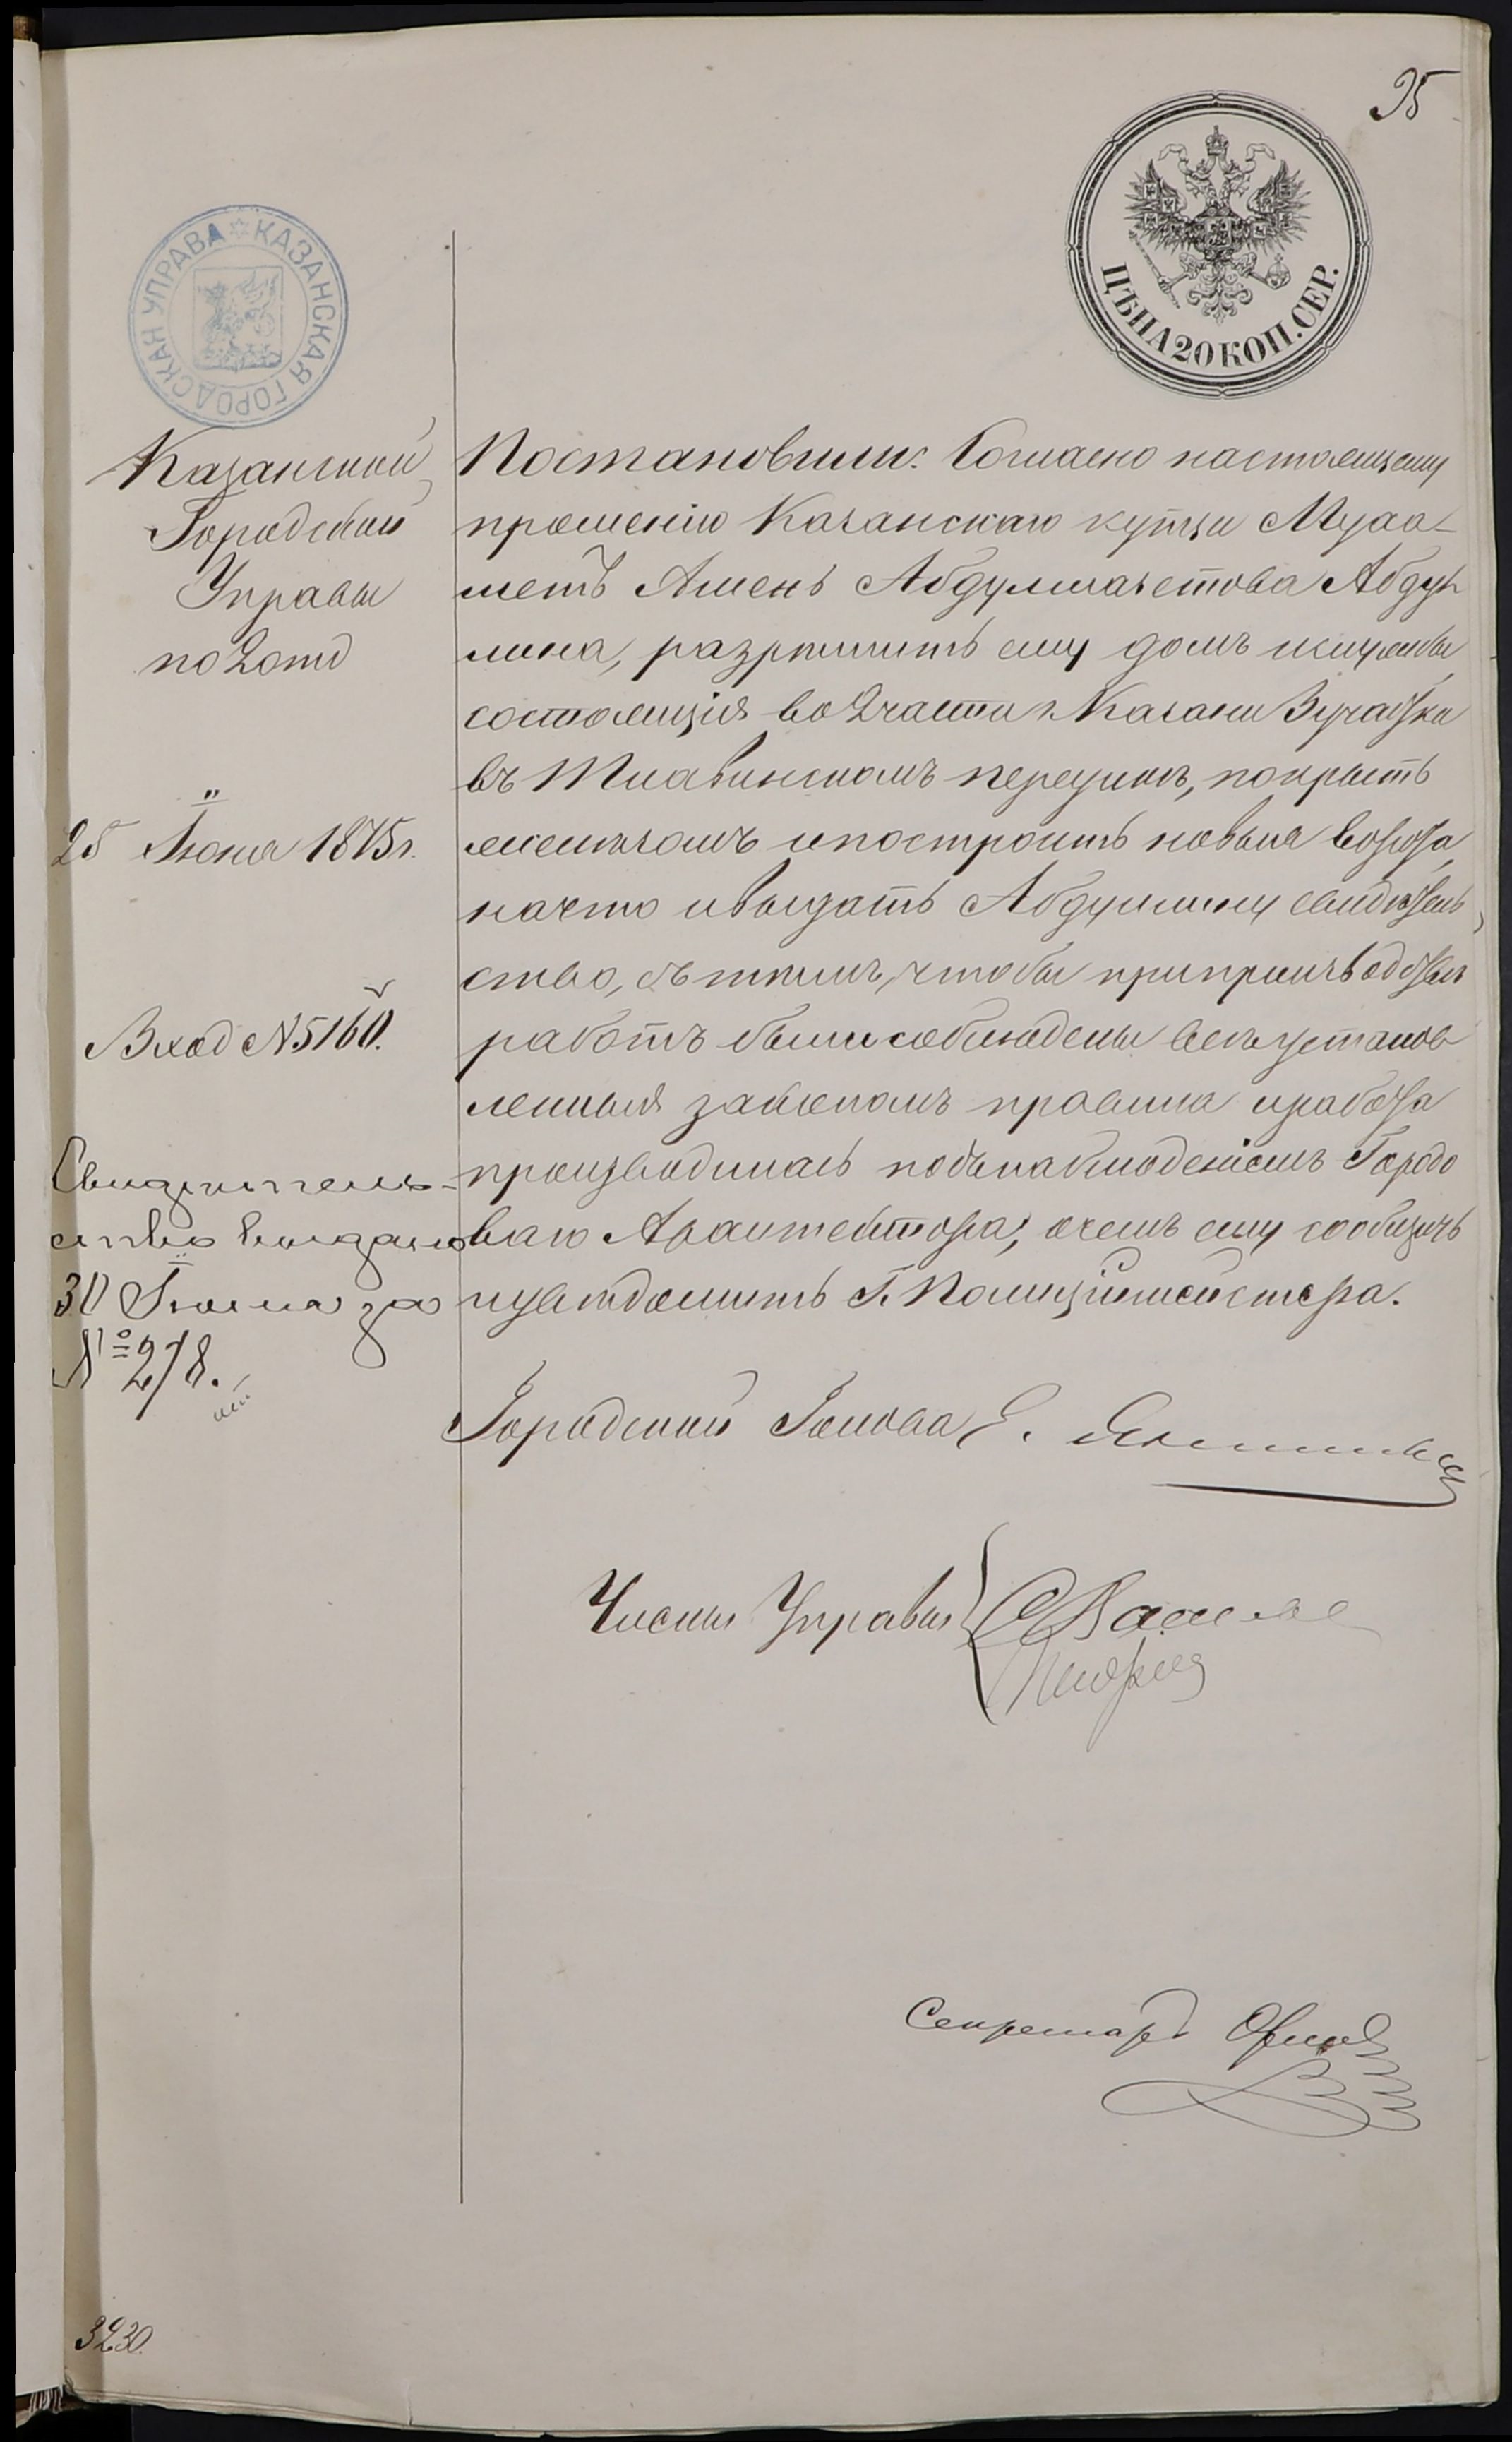 95
КАЗАНСКАЯ ГОРОДСКАЯ УПРАВА
ЦѢНА 20 КОП. СЕР.
Казанской
Городской
Управы
по 2 отд
25 Июня 1875 г.
Вход № 5160.
Свидѣтель-
ство выдано
30 Іюня за
№ 278.
Постановили: Согласно настоящему
прошенію Казанскаго купца Мухо-
метъ Аменъ Абдул
лина, разрѣшить ему домъ и службы
состоящія во 2 части г. Казани 3 участка
въ переулкѣ, покрыть
желѣзомъ и построить новыя ворота,
на что и выдать Абдуллину свидѣтель
ство, съ тѣмъ, чтобы при производствѣ
работъ были соблюдены всѣ установ
ленныя закономъ правила и работа
производилась подъ наблюденіемъ Городо
ваго Архитектора, о чемъ ему сообщить
и увѣдомить Г. Полиціймейстера.
Городской Голова Е.
Члены Управы
Секретарь Орлов
3230.